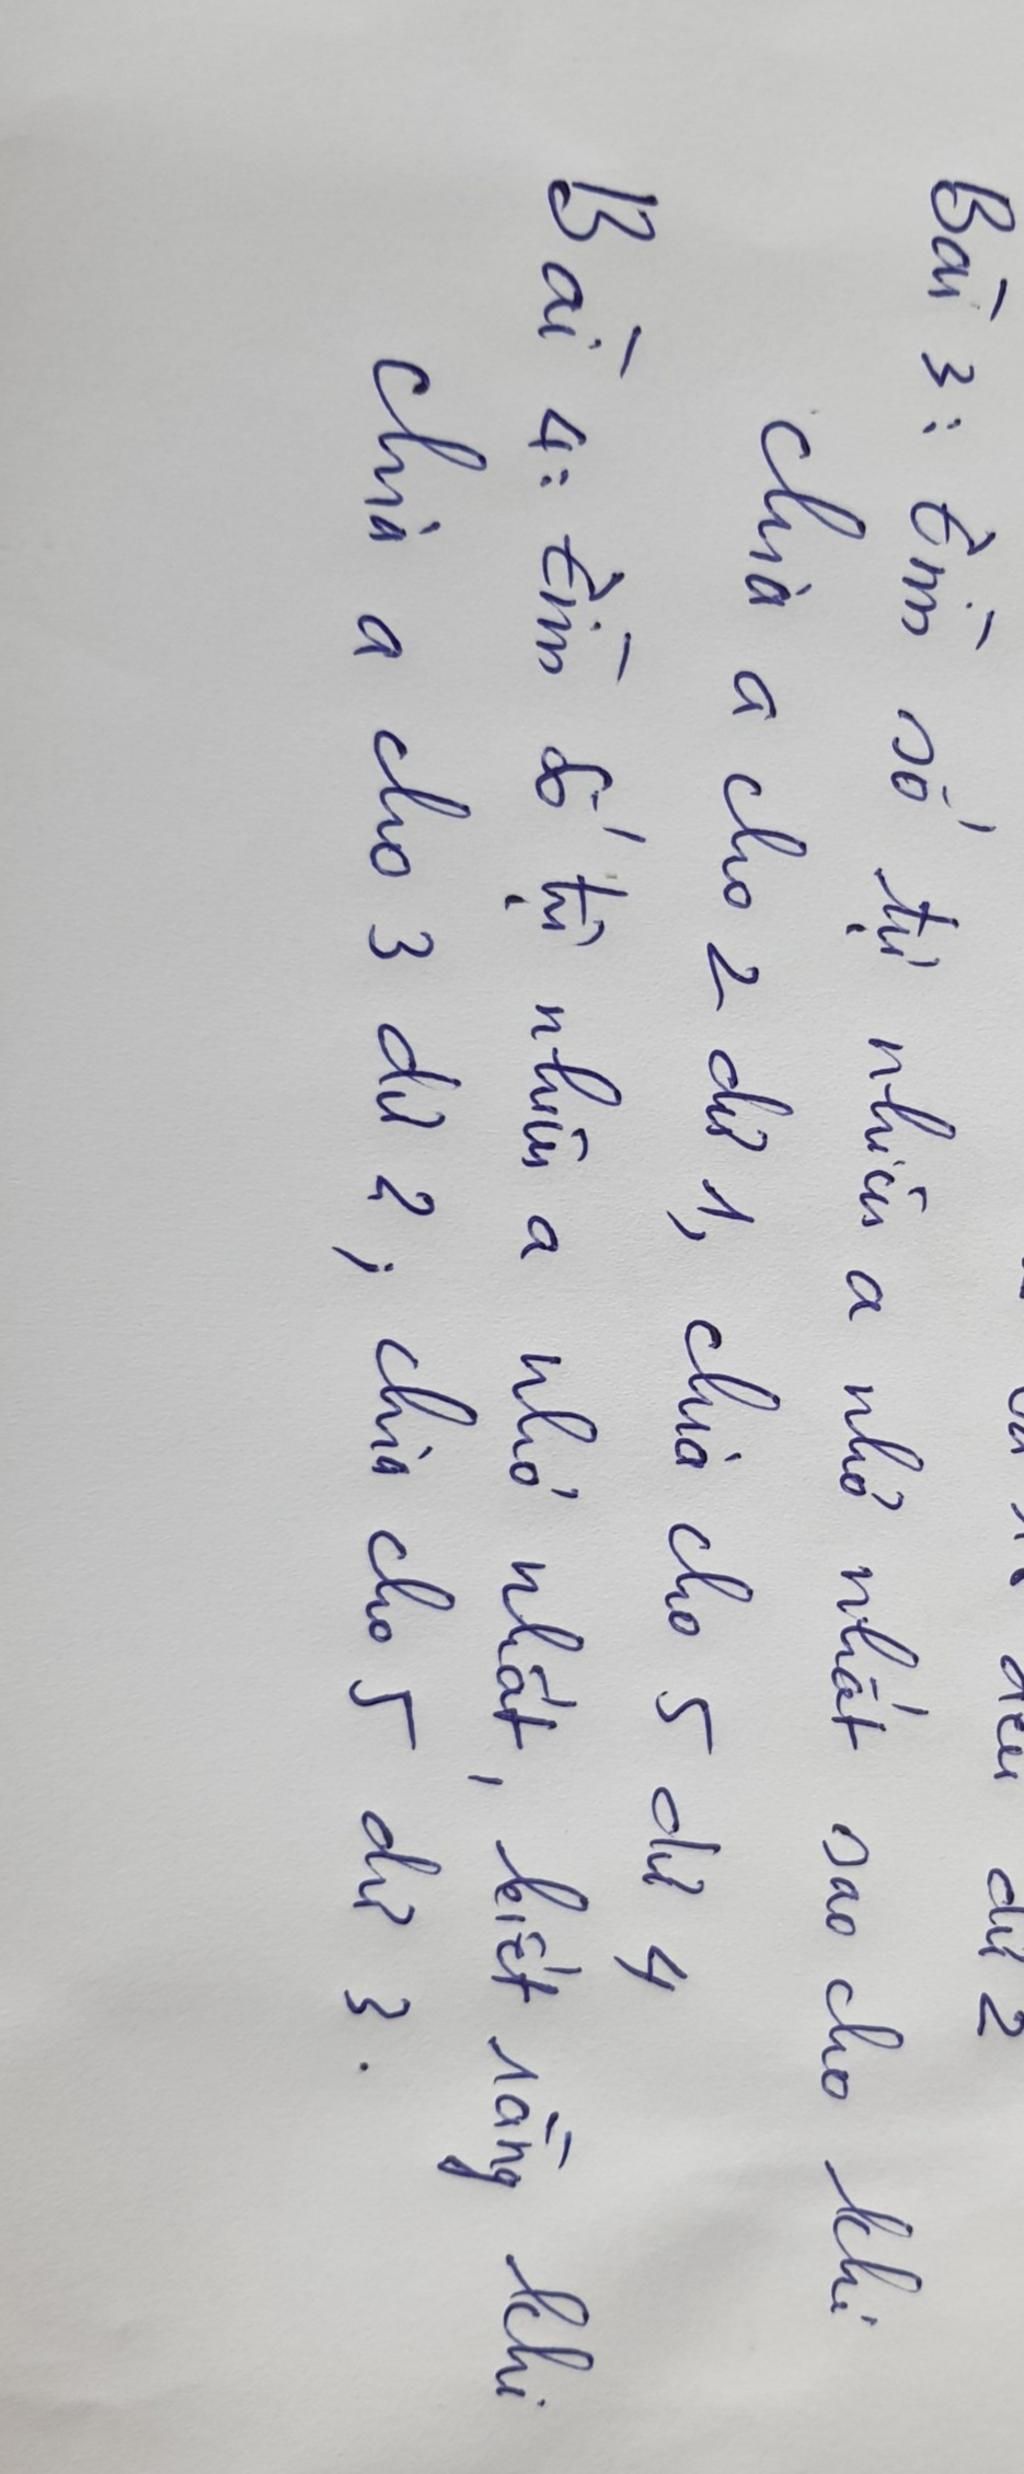 đều dư 2
Bài 3: tìm số tự nhiên a nhỏ nhất sao cho khi
chia a cho 2 dư 1, chia cho 5 dư 4
Bài 4: tìm số tự nhiên a nhỏ nhất, biết rằng khi
chia a cho 3 dư 2; chia cho 5 dư 3.